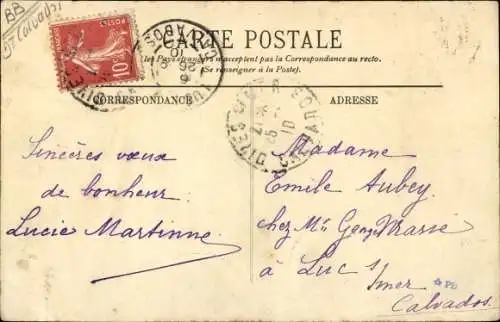 BB
Calvados
10c
CARTE POSTALE
les Pays étrangers n'acceptent pas la Correspondance au recto.
(Se renseigner à la Poste).
CORRESPONDANCE
ADRESSE
Sincères vœux
de bonheur
Lucie Martinne
Madame
Emile Aubey
chez Mr Georges Masse
à Luc s/
mer
Calvados